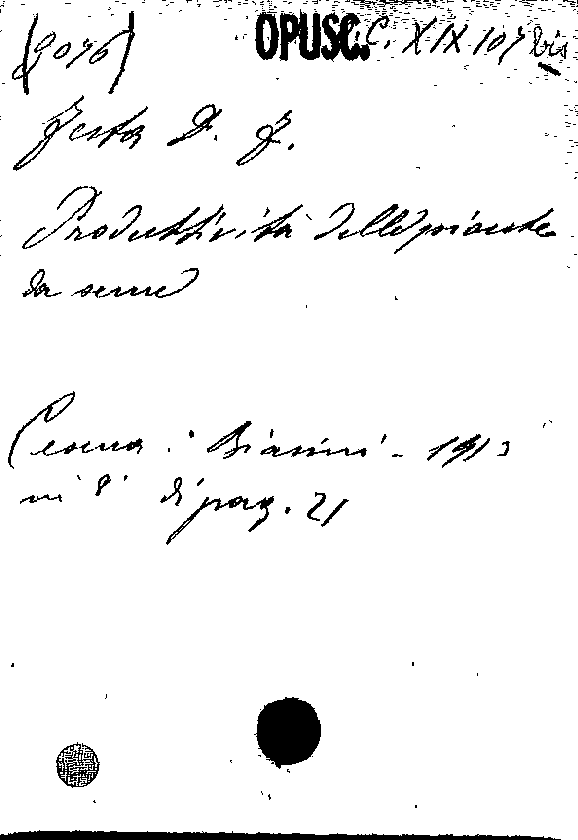 (9076) OPUSC. C. XIX 107 bis
Festa D. F.
Produttività delle piante
da seme
Cesena: Biasini - 1913
in 8° di pag. 21